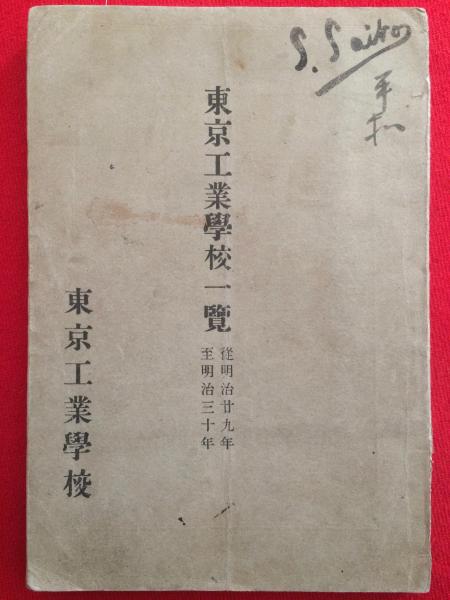 S. Saitoo
東京工業學校一覽
從明治廿九年
至明治三十年
東京工業學校